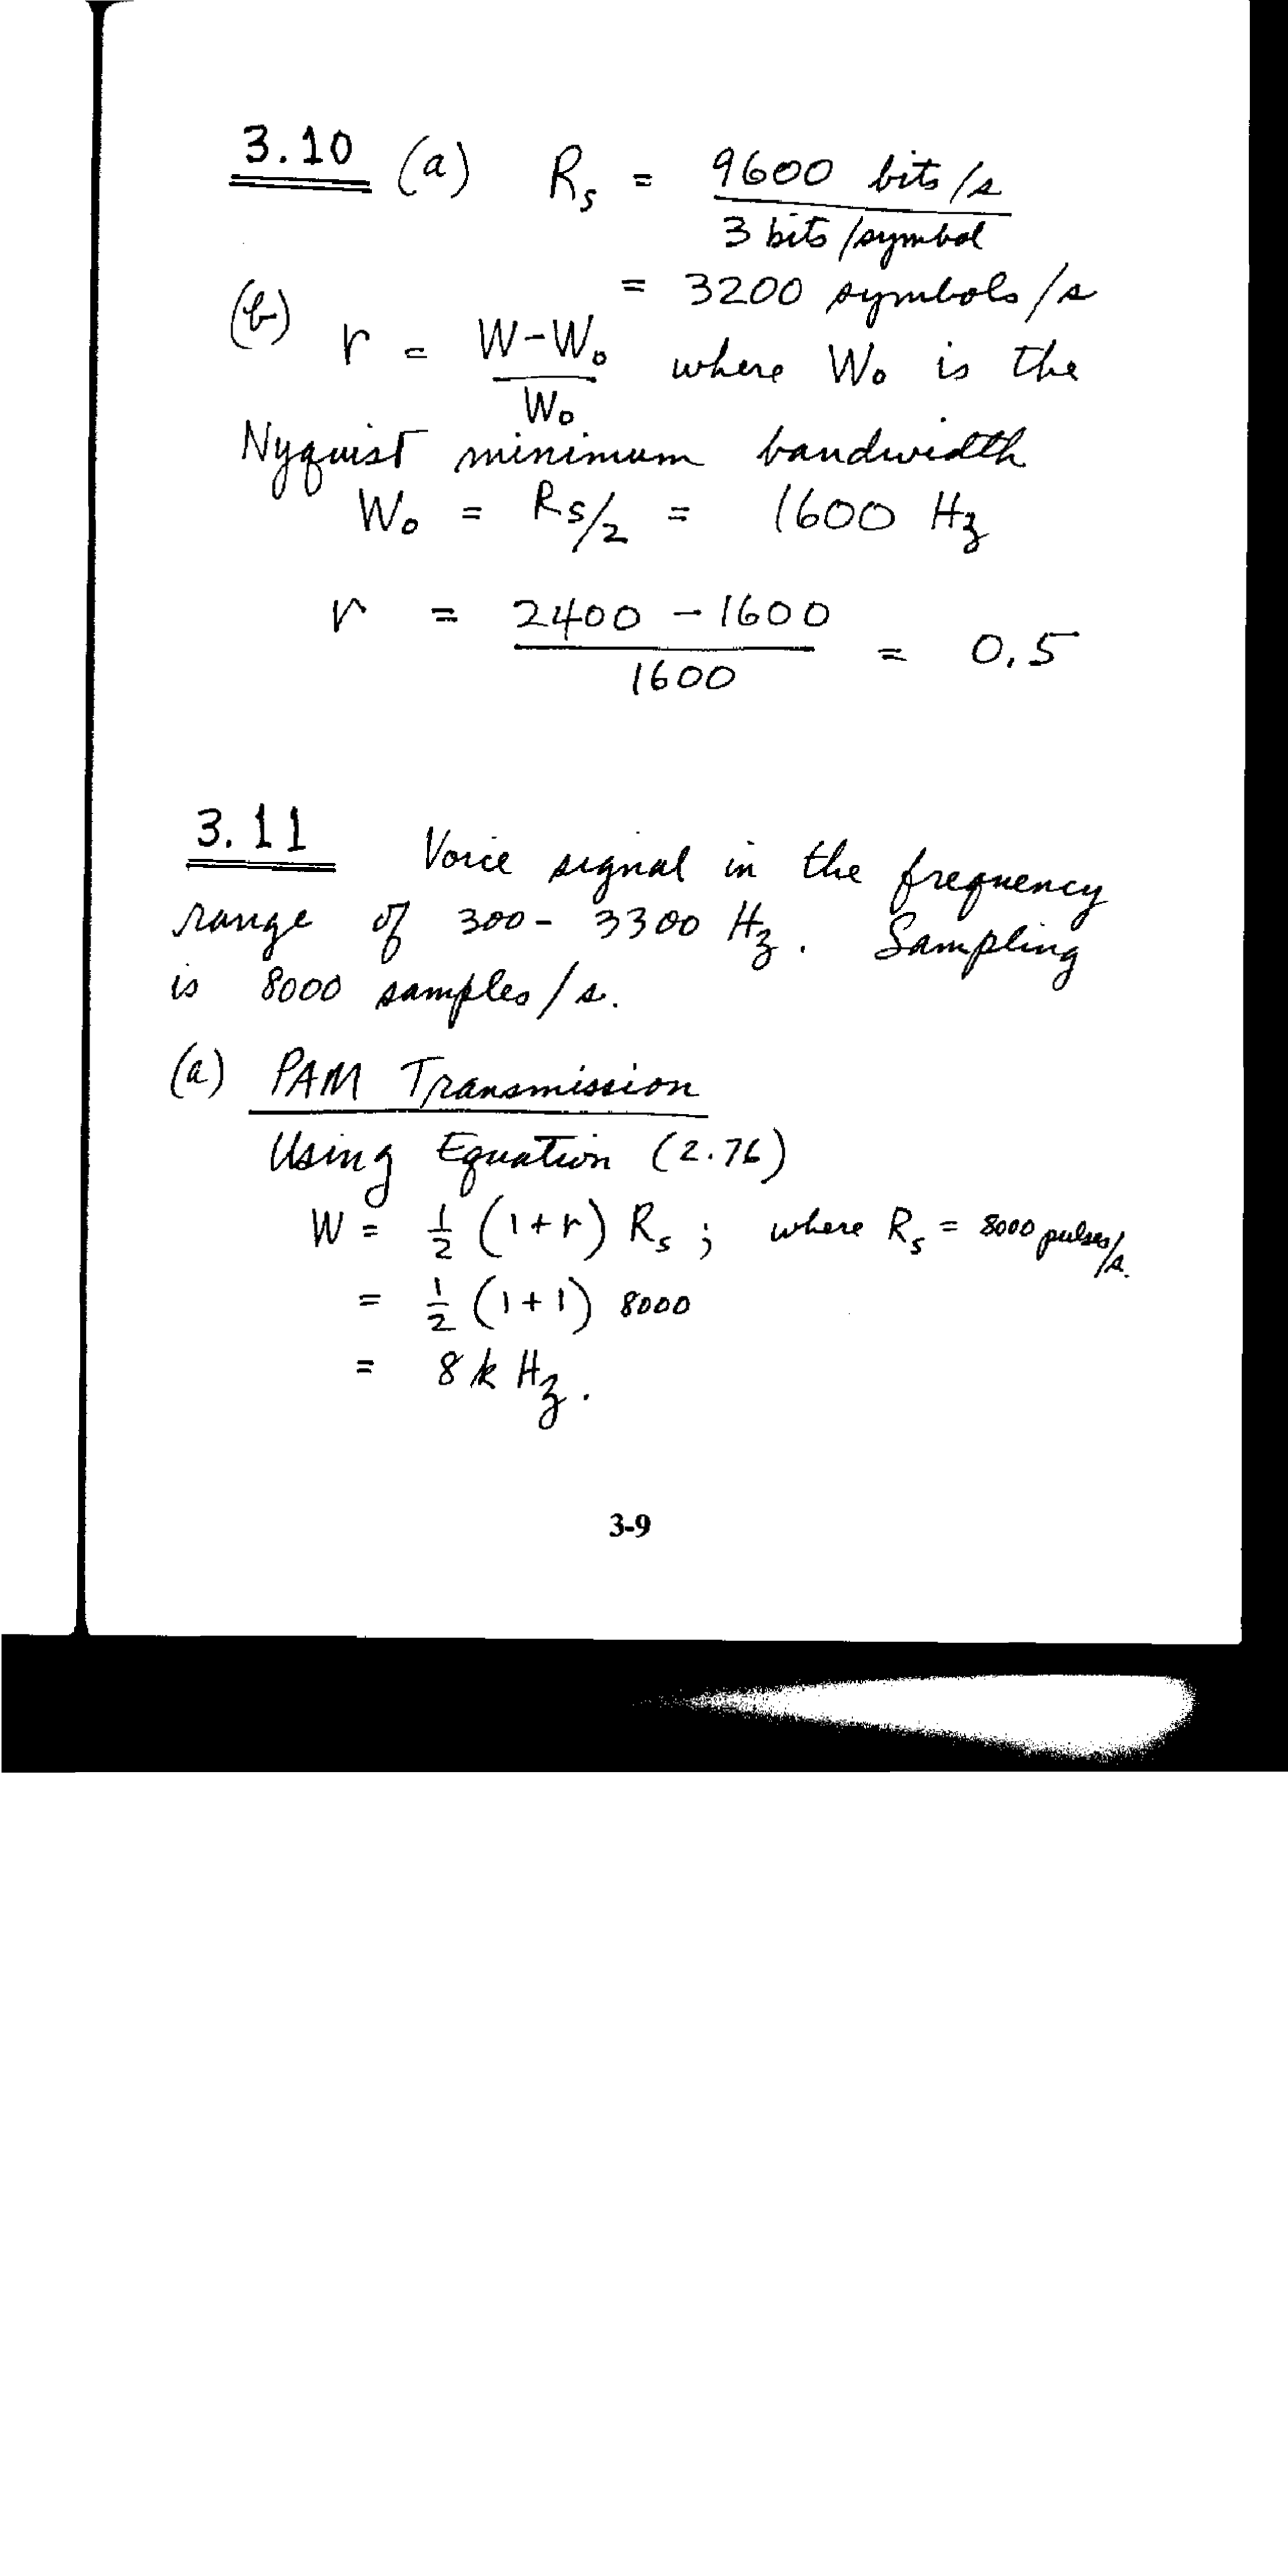 3.10 (a) R_s = 9600 bits/s / 3 bits/symbol
= 3200 symbols/s
(b) r = W-W_o / W_o where W_o is the
Nyquist minimum bandwidth
W_o = R_s/2 = 1600 Hz
r = 2400 - 1600 / 1600 = 0.5
3.11 Voice signal in the frequency
range of 300-3300 Hz. Sampling
is 8000 samples/s.
(a) PAM Transmission
Using Equation (2.76)
W = 1/2 (1+r) R_s ; where R_s = 8000 pulses/s.
= 1/2 (1+1) 8000
= 8 kHz.
3-9